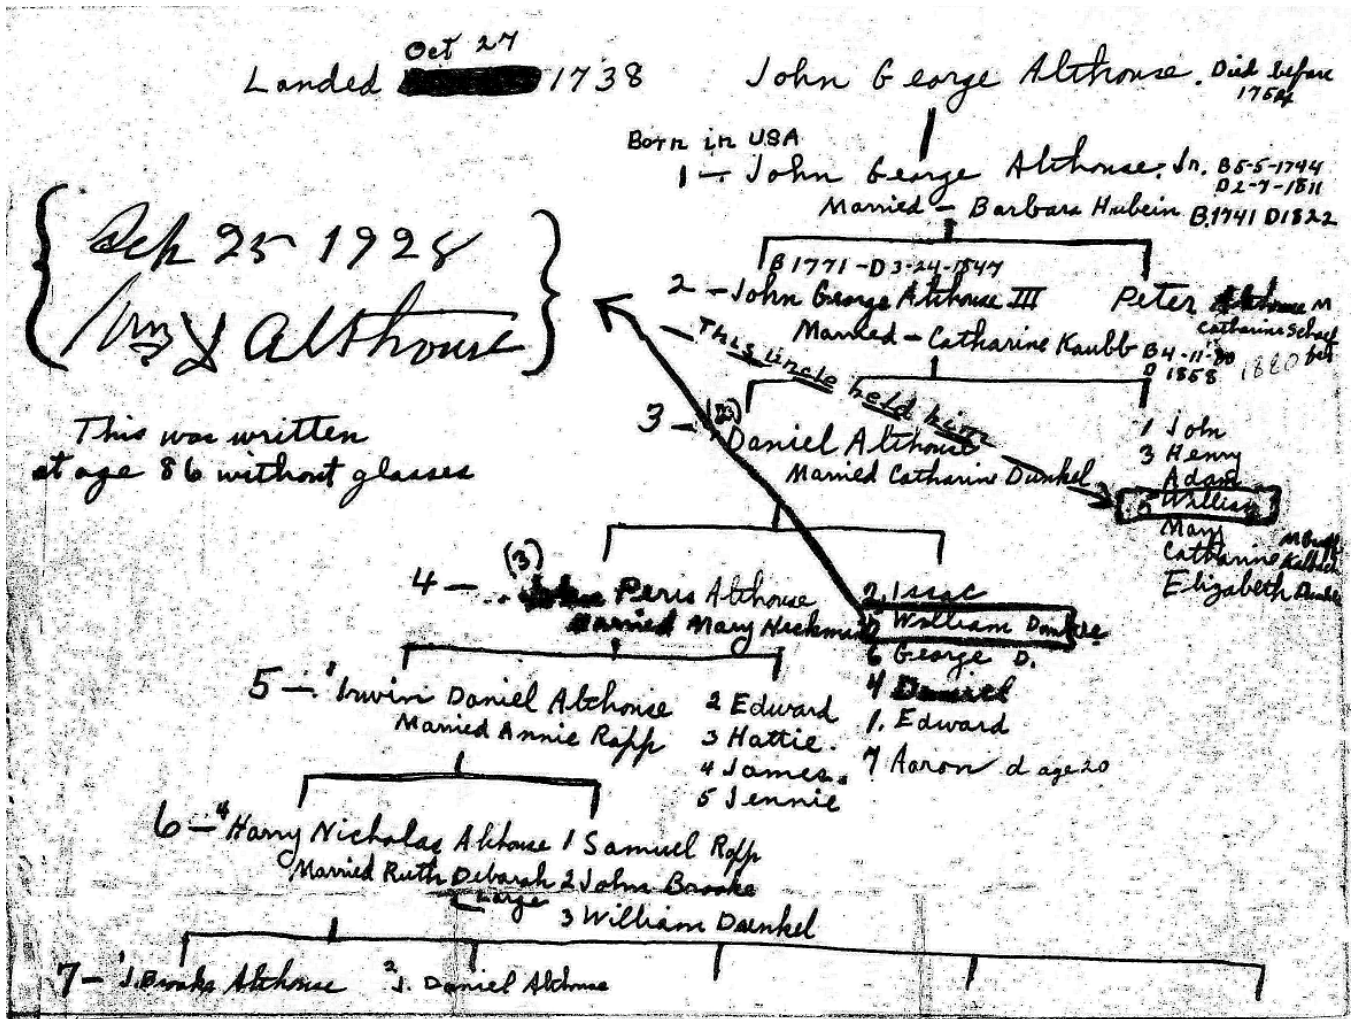 Oct 27
Landed 1738
John George Althouse. Died before
1754
Born in USA
1 - John George Althouse. Jr. B 5-5-1744
D 2-7-1811
Married - Barbara Hubein B. 1741 D 1822
Sep 25 1928
Wm D Althouse
This was written
at age 86 without glasses
B 1771 - D 3-24-1847
2 - John George Althouse III
Married - Catharine Kaubb B 4-11-80
D 1858 1880
Peter Althouse M
Catharine Schaef
This uncle held him
3 - (2) Daniel Althouse
Married Catharine Dunkel
1 John
3 Henry
Adam
5 William
Mary
Catharine
Elizabeth
4 - (3) Peris Althouse
Married Mary Heckman
2. Isaac
William Dunkle
6 George D.
4 Daniel
1. Edward
7 Aaron d age 20
5 - 1 Irwin Daniel Althouse
Married Annie Rapp
2 Edward
3 Hattie.
4 James.
5 Jennie
6 - 4 Harry Nicholas Althouse
Married Ruth Deborah
Large
1 Samuel Rapp
2 John Brooke
3 William Dunkel
7 - 1 J. Brooke Althouse
2 J. Daniel Althouse